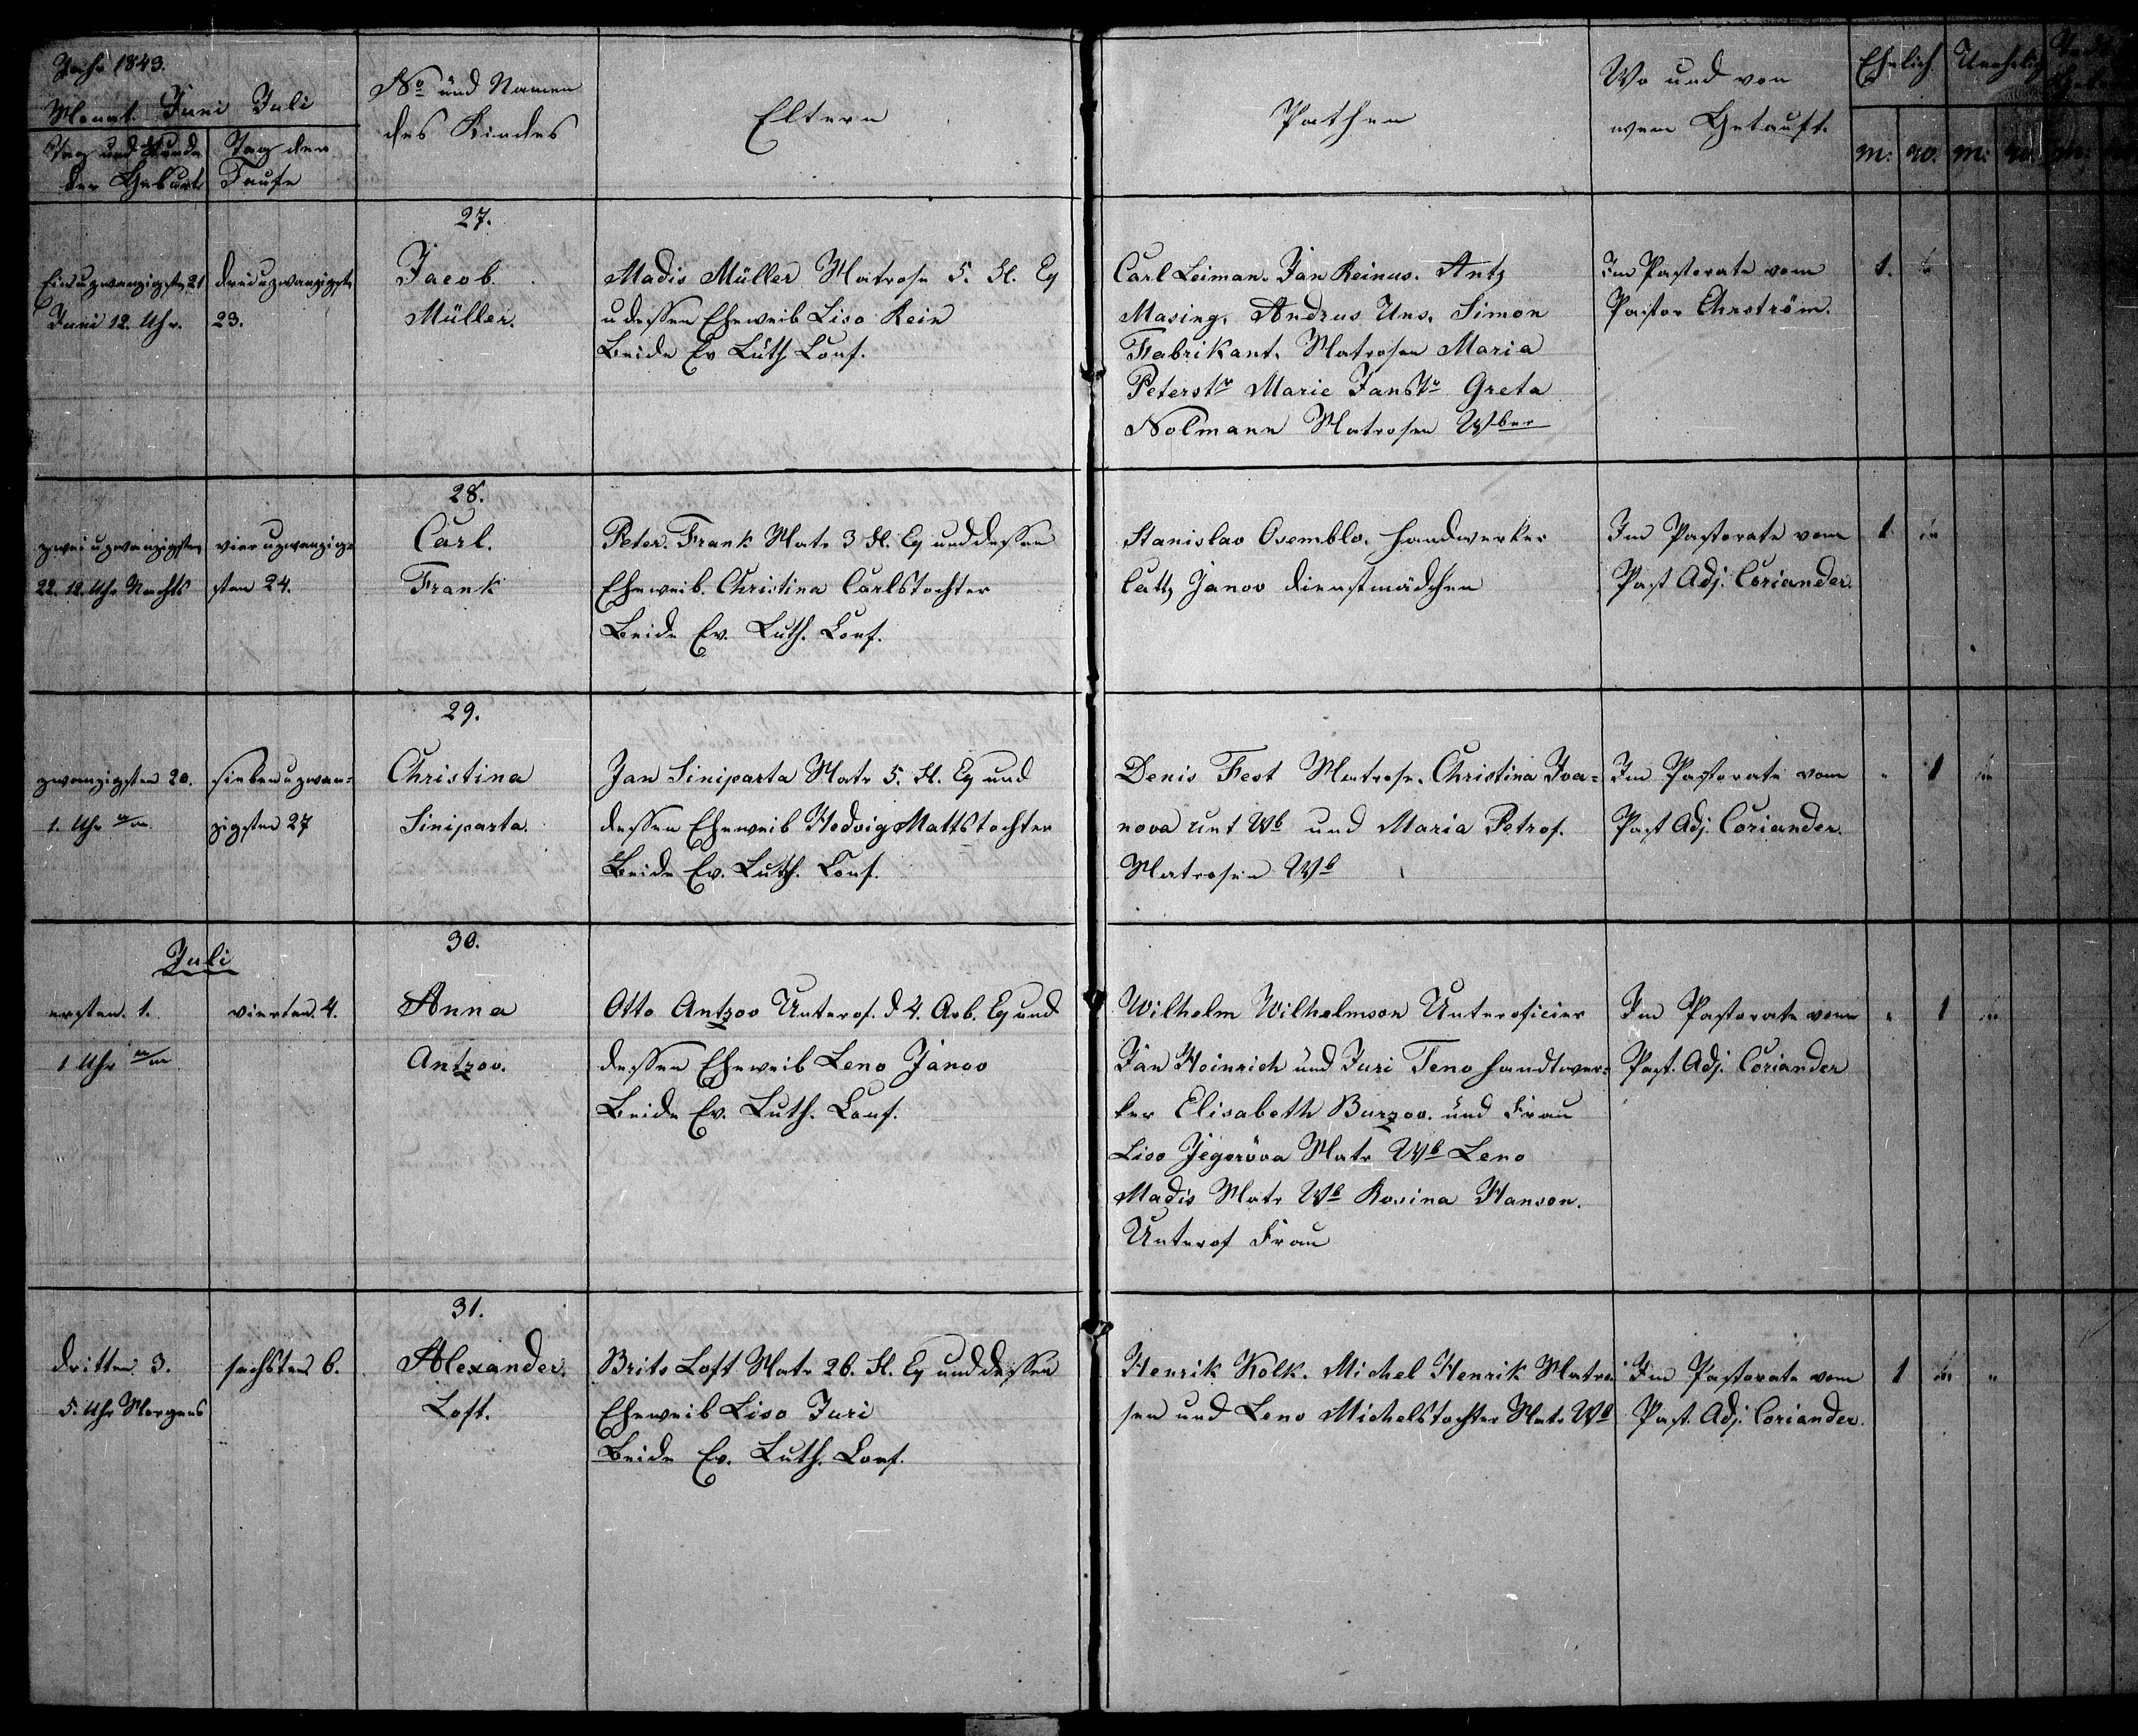 Jahr 1843.
Monat. Juni Juli
Tag und Stunde der Geburt
Tag der Taufe
No und Namen des Kindes
Eltern
Pathen
Wo und von wem Getauft.
Ehelich
Unehelich
m: w. m: w. m:
27.
Einuzwanzigsten 21
Juni 12. Uhr.
dreiuzwanzigste
23.
Jacob.
Müller.
Madis Müller Matrose 5. Fl. Eq
u dessen Eheweib Liso Rein
Beide Ev Luth Conf.
Carl Leiman. Jan Reinus. Antz
Masing. Andrus Uns. Simon
Fabrikant. Matrosen Maria
Peterstr Marie Janstr Greta
Nolmann Matrosen Wber
Im Pastorate vom
Pastor Ehrström.
1.
28.
zweiuzwanzigsten
22. 12. Uhr Nachts
vieruzwanzig=
sten 24.
Carl.
Frank
Peter. Frank Matr 3 Fl. Eq und dessen
Eheweib. Christina Carlstochter
Beide Ev. Luth. Conf.
Stanislav Osemblo. Handwerker
Catz Janov Dienstmädchen
Im Pastorate vom
Past Adj. Coriander.
1
29.
zwanzigsten 20.
1. Uhr
siebenuzwan=
zigsten 27
Christina
Siniparta.
Jan Siniparta Matr 5. Fl. Eq und
dessen Eheweib Hedvig Mattstochter
Beide Ev. Luth. Conf.
Denis Fest Matrose. Christina Iva=
nova Unt Wb und Maria Petrof.
Matrosen Wb
Im Pastorate vom
Past Adj. Coriander.
1
30.
Juli
ersten. 1.
1 Uhr
vierten. 4.
Anna
Antzov.
Otto Antzov Unterof. d 4. Arb. Eq und
dessen Eheweib Leno Janov
Beide Ev. Luth. Conf.
Wilhelm Wilhelmson Unteroficier
Jan Heinrich und Juri Teno Handtwer=
ker Elisabeth Burzov. und Frau
Liso Jegorova Matr Wb Leno
Madis Matr Wb Rosina Hanson.
Unterof Frau
Im Pastorate vom
Past. Adj. Coriander
1
31.
dritten 3.
5. Uhr Morgens
sechsten 6.
Alexander.
Loft.
Brits Loft Matr 26. Fl. Eq und dessen
Eheweib Liso Juri
Beide Ev. Luth. Conf.
Henrik Kolk. Michel Henrik Matro
sen und Leno Michelstochter Matr Wb
Im Pastorate vom
Past. Adj. Coriander.
1